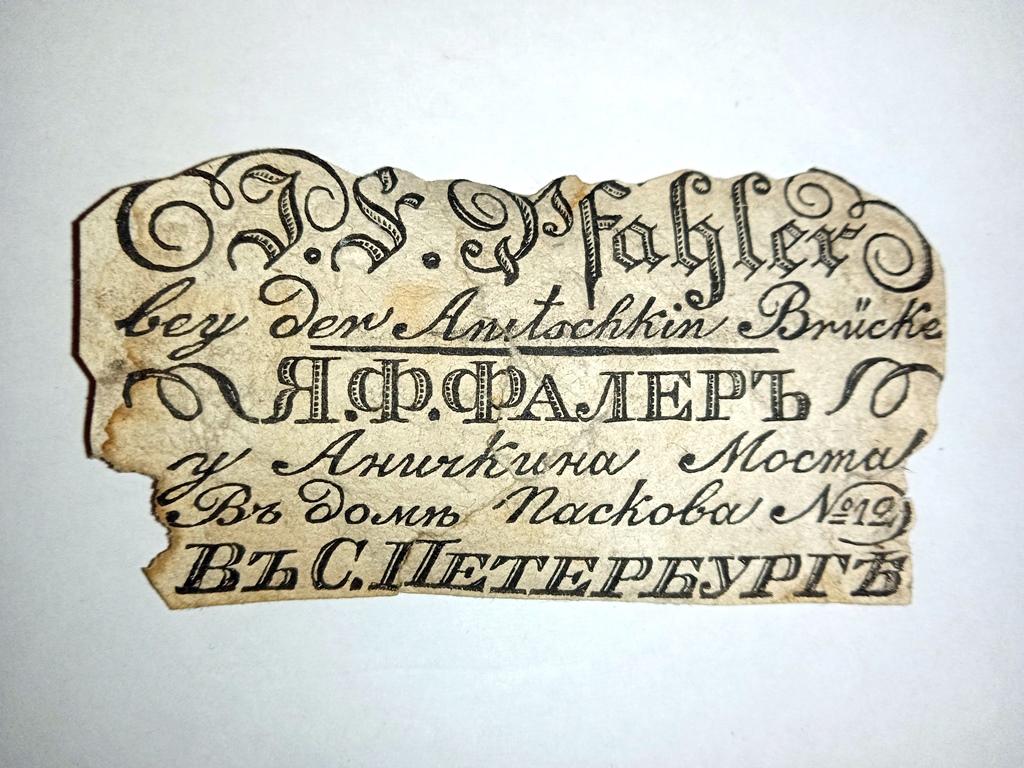 J. F. Pfahler
bey der Anitschkin Brücke
Я. Ф. ФАЛЕРЪ
у Аничкина Моста
Въ домѣ Паскова №12
ВЪ С. ПЕТЕРБУРГѢ